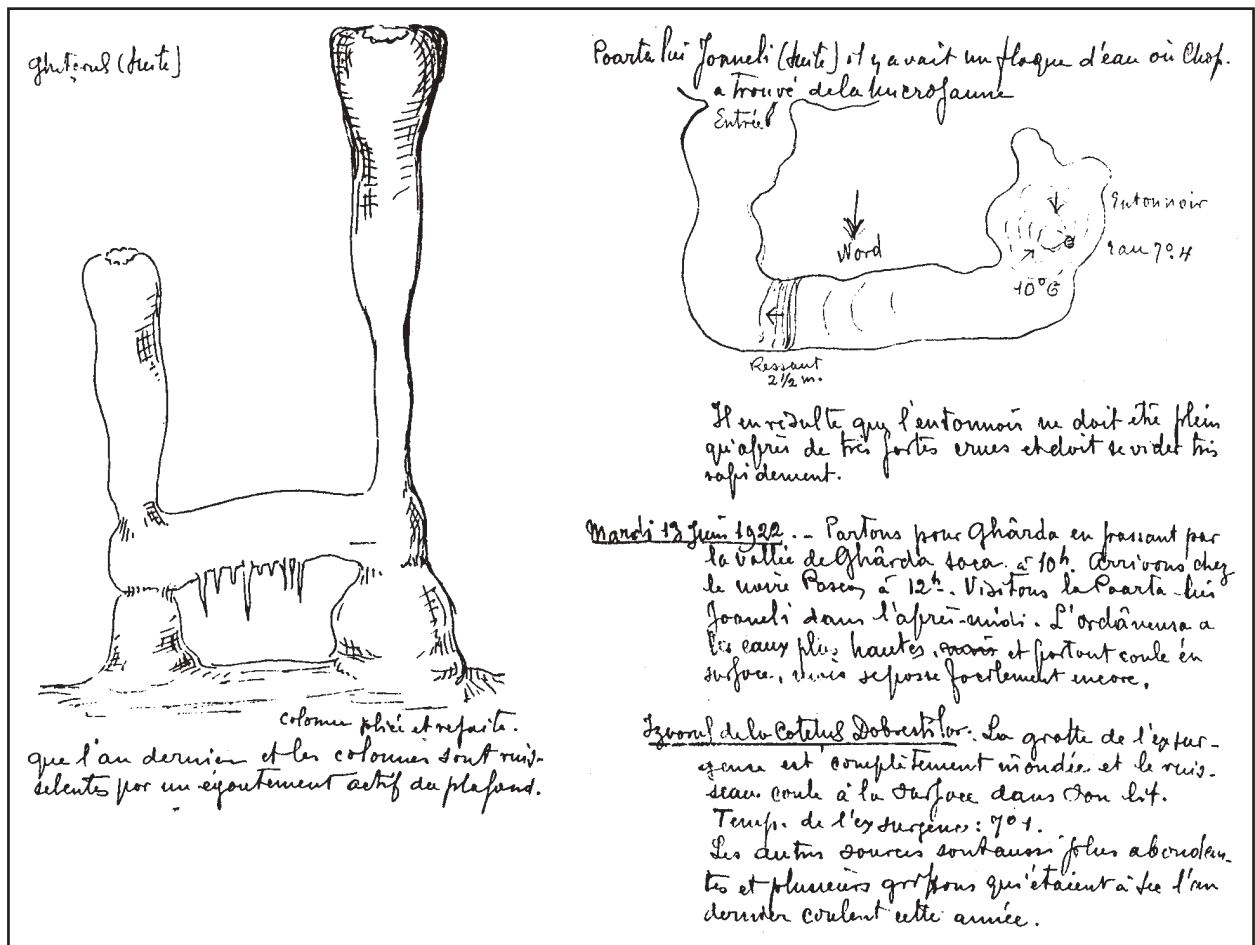 Ghețarul (suite)
colonne pliée et refaite.
que l'an dernier et les colonnes sont ruis-
selentes par un égouttement actif du plafond.
Poarta lui Joaneli (suite) il y avait un flaque d'eau où Chop.
a trouvé de la microfaune
Entrée
Nord
Entonnoir
eau 7°.4
10°6
Ressaut
2 1/2 m.
Il en résulte que l'entonnoir ne doit être plein
qu'après de très fortes crues et doit se vider très
rapidement.
Mardi 13 Juin 1922. - Partons pour Ghârda en passant par
la vallée de Ghârda saca à 10h. Arrivons chez
le à 12h. Visitons la Poarta-lui
Joaneli dans l'après-midi. L'ordâncusa a
les eaux plus hautes, et partout coule en
surface, mais se passe facilement encore.
Izvorul de la Cotetul Dobrestilor. La grotte de l'exsur-
gence est complètement inondée et le ruis-
seau coule à la surface dans son lit.
Temp. de l'exsurgence: 7°1.
Les autres sources sont aussi plus abondan-
tes et plusieurs griffons qui étaient à sec l'an
dernier coulent cette année.